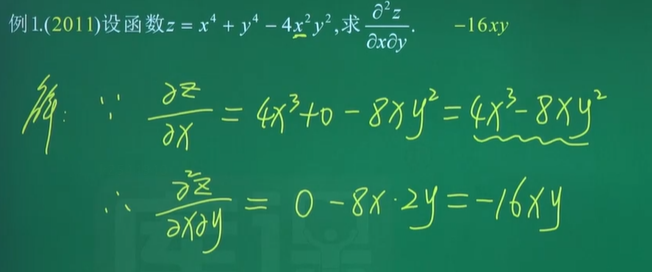 例1.(2011)设函数z = x⁴ + y⁴ − 4x²y²,求 ∂²z/∂x∂y. −16xy
解: ∵ ∂z/∂x = 4x³+0 − 8xy² = 4x³−8xy²
∴ ∂²z/∂x∂y = 0 −8x·2y = −16xy